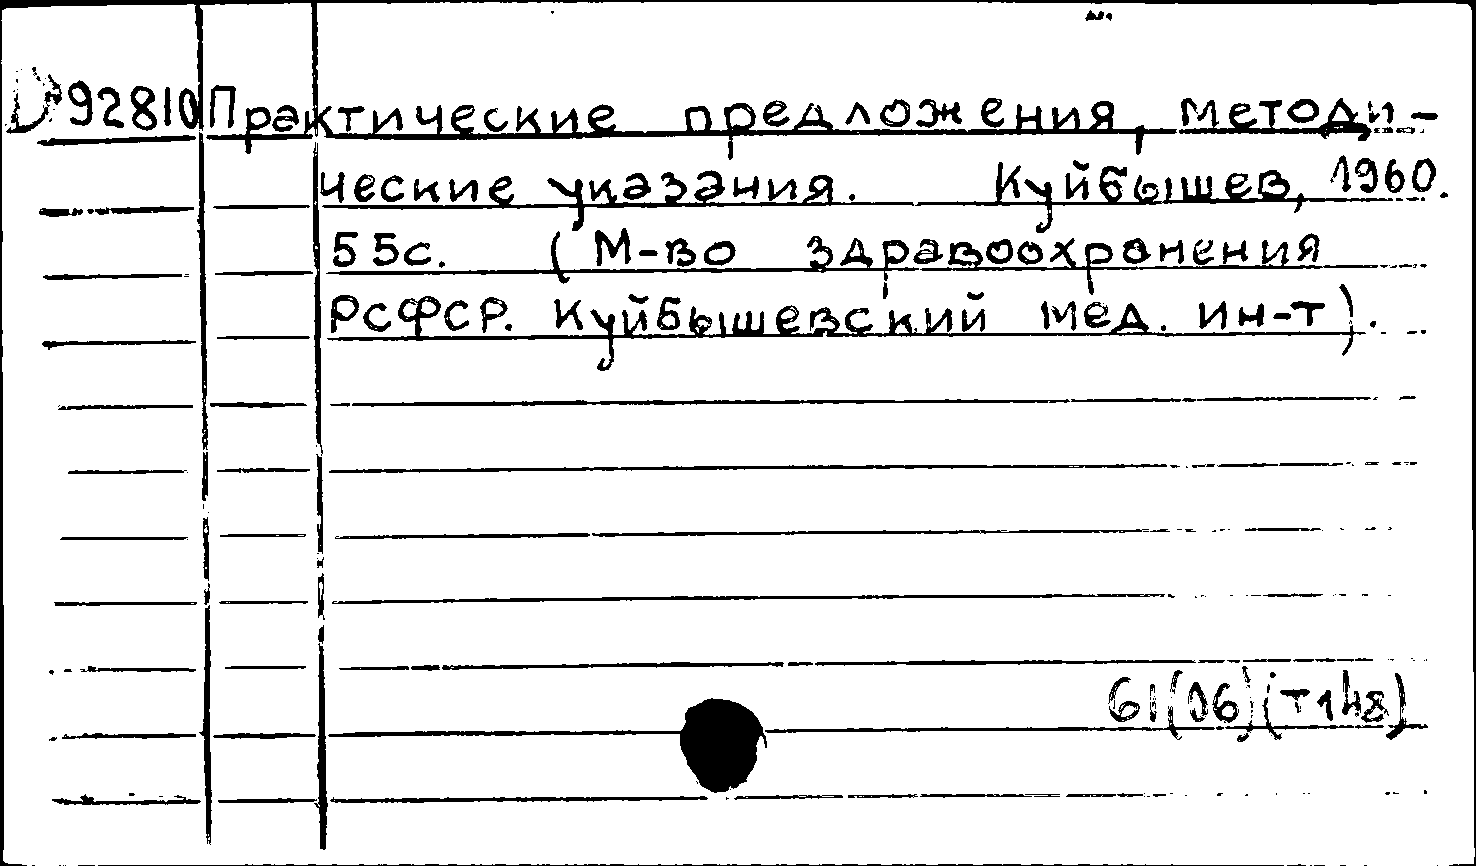 D92810 Практические предложения, методи-
ческие указания. Куйбышев, 1960.
55с. (М-во здравоохранения
РСФСР. Куйбышевский мед. ин-т).
61(06)(Т148)